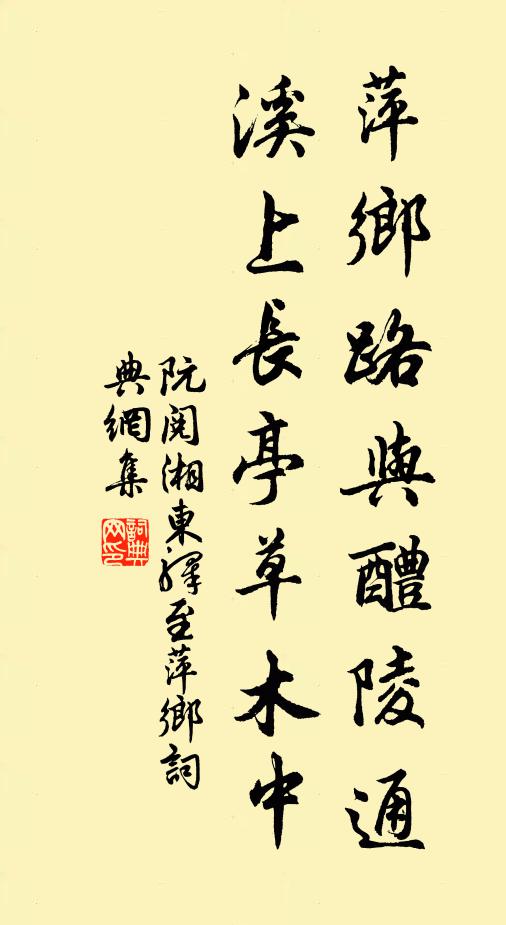 萍鄉路與醴陵通
溪上長亭草木中
阮閱湘東驛至萍鄉詞
典網集
詞典網印